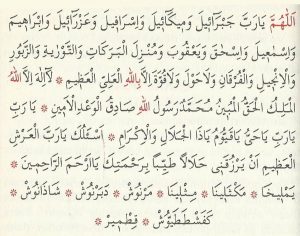 اَللّٰهُمَّ يَارَبَّ جَبْرَآئِيلَ وَمِيكَآئِيلَ وَاِسْرَافِيلَ وَعَزْرَآئِيلَ وَاِبْرَاهِيمَ
وَاِسْمٰعِيلَ وَاِسْحٰقَ وَيَعْقُوبَ وَمُنْزِلَ الْبَرَكَاتِ وَالتَّوْرٰيةِ وَالزَّبُورِ
وَالْاِنْجِيلِ وَالْفُرْقَانِ وَلَاحَوْلَ وَلَاقُوَّةَ اِلَّا بِاللّٰهِ الْعَلِىِّ الْعَظِيمِ * لَآاِلٰهَ اِلَّا اللّٰهُ
الْمَلِكُ الْحَقُّ الْمُبِينُ مُحَمَّدٌ رَسُولُ اللّٰهِ صَادِقُ الْوَعْدِ الْاَمِينِ * يَا رَبِّ
يَارَبِّ يَاحَىُّ يَاقَيُّومُ يَاذَا الْجَلَالِ وَالْاِكْرَامِ * اَسْئَلُكَ يَارَبَّ الْعَرْشِ
الْعَظِيمِ اَنْ يَرْزُقَنِى حَلَالًا طَيِّبًا بِرَحْمَتِكَ يَآاَرْحَمَ الرَّاحِمِينَ *
يَمْلِيخَا * مَكْثَلِينَا * مِثْلِينَا * مَرْنُوشْ * دَبَرْنُوشْ * شَاذَنُوشْ
* كَفَشْطَطَيُّوشْ * قِطْمِيرْ *